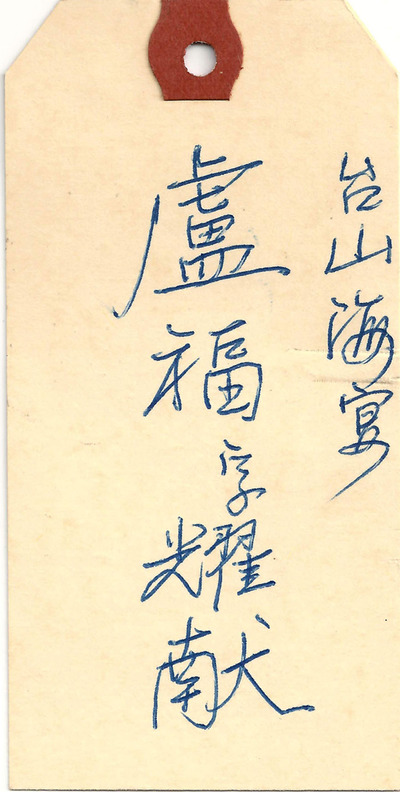 台山海宴
盧福字耀献